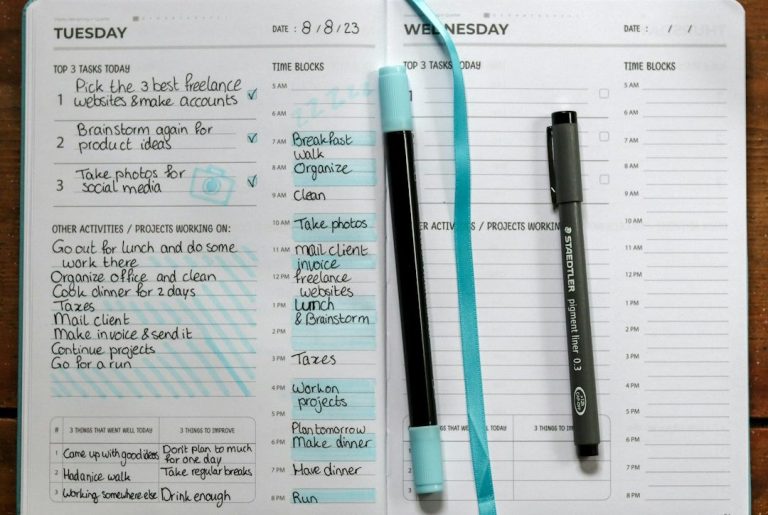 TUESDAY
DATE : 8/8/23
TOP 3 TASKS TODAY
1 Pick the 3 best freelance
websites & make accounts
2 Brainstorm again for
product ideas
3 Take photos for
social media
OTHER ACTIVITIES / PROJECTS WORKING ON:
Go out for lunch and do some
work there
Organize office and clean
Cook dinner for 2 days
Taxes
Mail client
Make invoice & send it
Continue projects
Go for a run
# 3 THINGS THAT WENT WELL TODAY 3 THINGS TO IMPROVE
1 Came up with good ideas Don't plan to much
for one day
2 Had a nice walk Take regular breaks
3 Working somewhere else Drink enough
TIME BLOCKS
5 AM
6 AM zzzzzz
7 AM Breakfast
walk
8 AM Organize
9 AM Clean
10 AM Take photos
11 AM Mail client
invoice
12 PM freelance
websites
1 PM Lunch
& Brainstorm
2 PM
3 PM Taxes
4 PM Work on
projects
5 PM
Plan tomorrow
6 PM Make dinner
7 PM Have dinner
8 PM Run
WEDNESDAY
DATE : / /
TOP 3 TASKS TODAY
1
OTHER ACTIVITIES / PROJECTS WORKING
3 THINGS TO IMPROVE
TIME BLOCKS
5 AM
6 AM
7 AM
8 AM
9 AM
10 AM
11 AM
12 PM
1 PM
2 PM
3 PM
4 PM
5 PM
6 PM
7 PM
8 PM
STAEDTLER
pigment liner 0.3